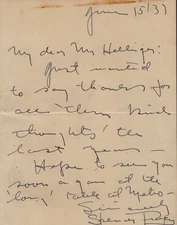 June 15/37
My dear Mr Hellinger:
Just wanted
to say thanks for
all them kind
thoughts' the
last years —
Hope to see you
soon again at the
'long' table at Metro —
Sincerely
Spencer Tracy